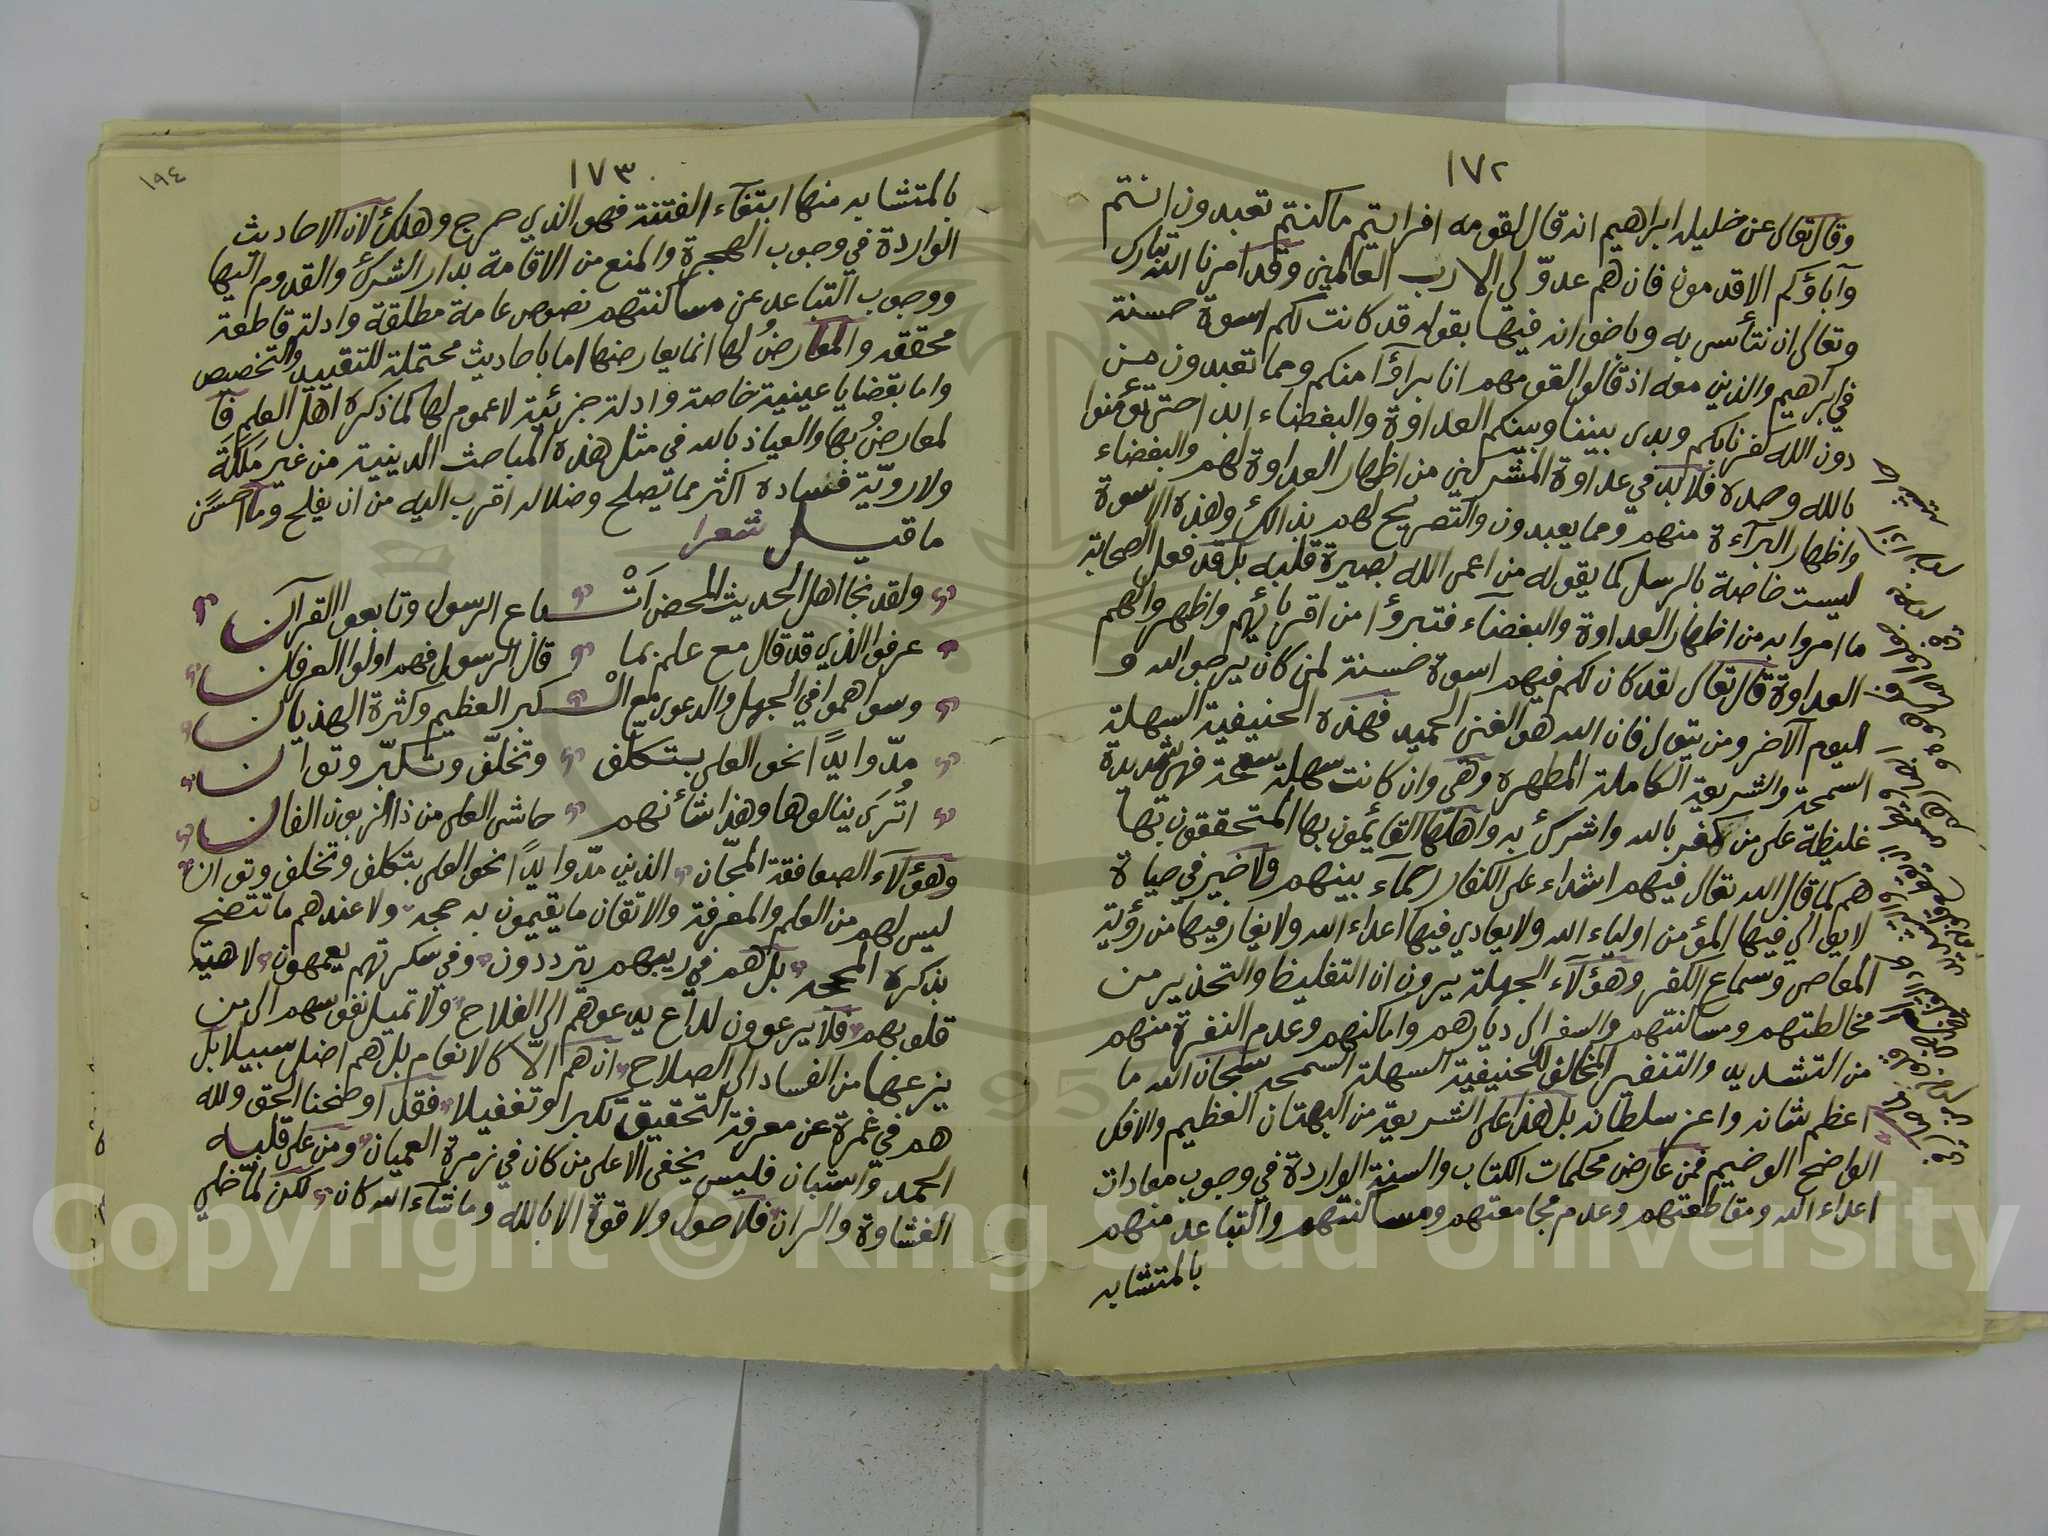 ١٧٢
وقال تعالى عن خليله ابراهيم انه قال لقومه افرايتم ما كنتم تعبدون انتم
وآباؤكم الاقدمون فانهم عدوّ لي الا رب العالمين وقد امرنا الله تبارك
وتعالى ان نتأسى به وباخوانه فيها بقوله قد كانت لكم اسوة حسنة
في ابراهيم والذين معه اذ قالوا لقومهم انا براؤآ منكم ومما تعبدون من
دون الله كفرنا بكم وبدى بيننا وبينكم العداوة والبغضاء ابدا حتى تؤمنوا
بالله وحده فلا بد في عداوة المشركين من اظهار العداوة لهم والبغضاء
واظهار البرآءة منهم ومما يعبدون والتصريح لهم بذالك وهذه الاسوة
ليست خاصة بالرسل كما يقوله من اعمى الله بصيرة قلبه بل قد فعل الصحابة
ما امروا به من اظهار العداوة والبغضآء فتبرؤا من اقربائهم واظهروا لهم
العداوة قال تعالى لقد كان لكم فيهم اسوة حسنة لمن كان يرجو الله و
اليوم الآخر ومن يتول فان الله هو الغني الحميد فهذه الحنيفية السهلة
السمحة والشريعة الكاملة المطهره وهي وان كانت سهلة سمحة فهي شديدة
غليظة على من كفر بالله واشرك به واهلها القايمون بها المتحققون بها
هم كما قال الله تعالى فيهم اشداء على الكفار رحمآء بينهم ولا خير في حياة
لا يوالي فيها المؤمن اولياء الله ولا يعادي فيها اعداء الله ولا يغار فيها من رؤية
المعاصي وسماع الكفر وهؤلآء الجهلة يرون ان التغليظ والتحذير من
مخالطتهم ومساكنتهم والسفر الى ديارهم واماكنهم وعدم النفرة منهم
من التشديد والتنفير المخالف للحنيفية السهلة السمحه سبحان الله ما
اعظم شانه واعز سلطانه بل هذا على الشريعة من البهتان العظيم والافك
الواضح الوخيم فمن عارض محكمات الكتاب والسنة الواردة في وجوب معادات
اعداء الله ومقاطعتهم وعدم مجامعتهم ومساكنتهم والتباعد منهم
بالمتشابه
١٧٣
١٩٤
بالمتشابه منها ابتغآء الفتنة فهو الذي حرج وهلك لان الاحاديث
الواردة في وجوب الهجرة والمنع من الاقامة بدار الشرك والقدوم اليها
ووجوب التباعد عن مساكنتهم نصوص عامة مطلقة وادلة قاطعة
محققه والمعارضُ لها انما يعارضها اما باحاديث محتملة للتقييد والتخصيص
واما بقضايا عينية خاصة وادلة جزئية لا عموم لها كما ذكره اهل العلم فا
لمعارضُ بها والعياذ بالله في مثل هذه المباحث الدينية من غير مَلَكَة
ولا رويّة فساده اكثر مما يصلح وضلاله اقرب اليه من ان يفلح وما احسَن
ما قيل شعرا
ولقد نجّا اهل الحديث المحض اَتْباع الرسول وتابعوا القرآن
عرفوا الذي قد قال مع علم بما قال الرسول فهم اولوا العرفان
وسواهموا في الجهل والدعوى مع الْكبر العظيم وكثرة الهذيان
مدّوا يدًا نحو العلى بتكلف وتخلّف وتكبّر وتوان
اتُرَى ينالوها وهذا شأنهم حاشى العلى من ذا الزبون الفان
وهؤلآء الصعافقة المجّان الذين مدّوا يدًا نحو العلى بتكلف وتخلف وتوان
ليس لهم من العلم والمعرفة والاتقان ما يقيمون به حجه ولا عندهم ما تتضح
بذكره المحجه بل هم في ريبهم يترددون وفي سكرتهم يعمهون لاهية
قلوبهم فلا يرعوون لداع يدعوهم الى الفلاح ولا تميل نفوسهم الى من
يزعها من الفساد الى الصلاح ان هم الّا كالانعام بل هم اضل سبيلا بل
هم في غمرة عن معرفة التحقيق تكبرا وتغفيلا فقد اوضحنا الحق ولله
الحمد واستبان فليس يخفى الا على من كان في زمرة العميان ومن على قلبه
الغشاوة والران فلا حول ولا قوة الا بالله وما شآء الله كان لكن لمّا خلي